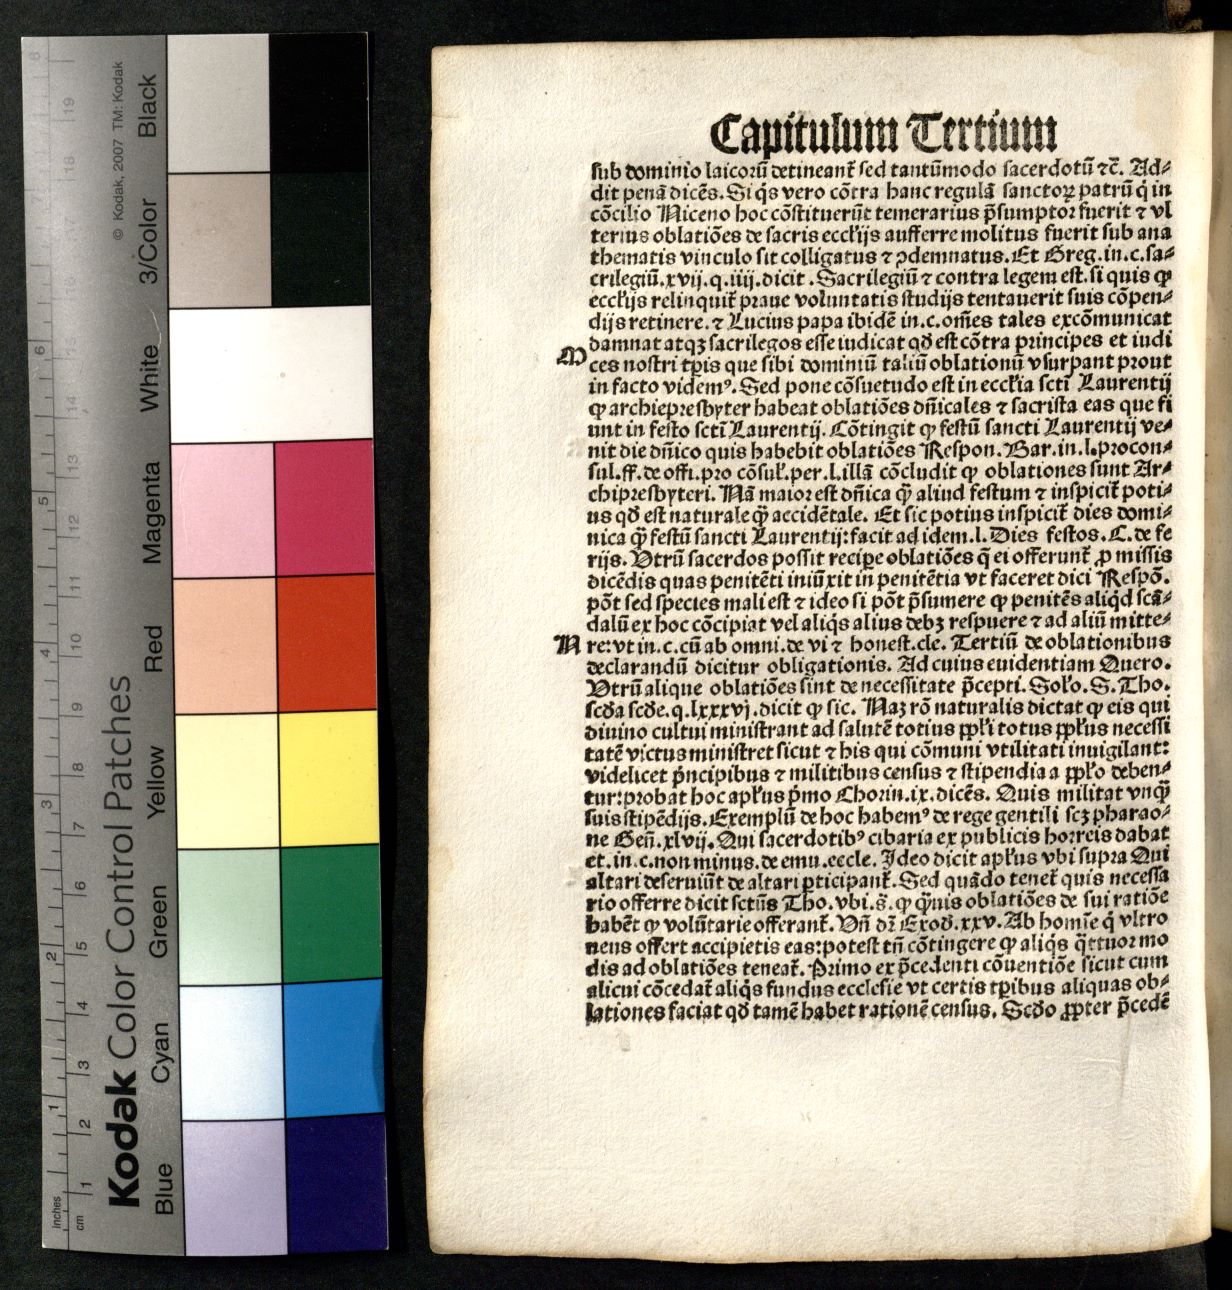 Capitulum Tertium
sub dominio laicorū detineant̃ sed tantūmodo sacerdotū ⁊c̃. Ad⸗
dit penā dicẽs. Si q̇s vero cōtra hanc regulā sanctoꝝ patrū q̇ in
cōcilio Niceno hoc cōstituerūt temerarius p̃sumptor fuerit ⁊ vl
terius oblatiōes de sacris eccłijs aufferre molitus fuerit sub ana
thematis vinculo sit colligatus ⁊ ꝯdemnatus. Et Greg. in. c. sa⸗
crilegiū. xvij. q. iiij. dicit. Sacrilegiū ⁊ contra legem est. si quis ꝙ
eccłijs relinquit̃ praue voluntatis studijs tentauerit suis cōpen⸗
dijs retinere. ⁊ Lucius papa ibidē in. c. om̃es tales excōmunicat
damnat atqꝫ sacrilegos esse iudicat qđ est cōtra principes et iudi
M
ces nostri tp̃is que sibi dominiū taliū oblationū vsurpant prout
in facto videmꝰ. Sed pone cōsuetudo est in eccłia scti̇̃ Laurentij
ꝙ archiepresbyter habeat oblatiōes dñicales ⁊ sacrista eas que fi
unt in festo scti̇̃ Laurentij. Cōtingit ꝙ festū sancti Laurentij ve⸗
nit die dñico quis habebit oblatiōes Respon. Bar. in. l. procon⸗
sul. ff. de offi. pro cōsuł. per. l. illā cōcludit ꝙ oblationes sunt Ar⸗
chipresbyteri. Nā maior est dñica q̃̄ aliud festum ⁊ inspicit̃ poti⸗
us qđ est naturale q̃̄ accidētale. Et sic potius inspicit̃ dies domi⸗
nica q̃̄ festū sancti Laurentij: facit ad idem. l. Dies festos. C. de fe
rijs. Vtrū sacerdos possit recipe oblatiōes q̄ ei offerunt̃ ꝓ missis
dicēdis quas penitēti iniūxit in penitētia vt faceret dici Respō.
pōt sed species mali est ⁊ ideo si pōt p̃sumere ꝙ penitēs aliq̇d scā⸗
dalū ex hoc cōcipiat vel aliq̇s alius debꝫ respuere ⁊ ad aliū mitte⸗
N
re: vt in. c. cū ab omni. de vi ⁊ honest. cle. Tertiū de oblationibus
declarandū dicitur obligationis. Ad cuius euidentiam Quero.
Vtrū alique oblatiōes sint de necessitate p̃cepti. Soło. S. Tho.
scđa scđe. q. lxxxvj. dicit ꝙ sic. Naꝫ rō naturalis dictat ꝙ eis qui
diuino cultui ministrant ad salutē totius ppłi totus ppłus necessi
tatē victus ministret sicut ⁊ his qui cōmuni vtilitati inuigilant:
videlicet p̃ncipibus ⁊ militibus census ⁊ stipendia a ppło deben⸗
tur: probat hoc apłus p̃mo Chorin. ix. dicēs. Quis militat vnq̃̄
suis stipēdijs. Exemplū de hoc habemꝰ de rege gentili scꝫ pharao⸗
ne Geñ. xlvij. Qui sacerdotibꝰ cibaria ex publicis horreis dabat
et. in. c. non minus. de emu. eccle. Ideo dicit apłus vbi supra Qui
altari deseruiūt de altari ꝑticipant̃. Sed quādo tenet̃ quis necessa
rio offerre dicit sctũs Tho. vbi. s̃. ꝙ q̃̄uis oblatiōes de sui ratiōe
habēt ꝙ volūtarie offerant̃. Vñ dr̄ Exod̃. xxv. Ab homīe q̇ vltro
neus offert accipietis eas: potest tñ cōtingere ꝙ aliq̇s q̄ttuor mo
dis ad oblatiōes teneat̃. Primo ex p̃cedenti cōuentiōe sicut cum
alicui cōcedat̃ aliq̇s fundus ecclesie vt certis tp̃ibus aliquas ob⸗
lationes faciat qđ tamē habet rationē census. Scđo ꝓpter p̃cedē
Kodak Color Control Patches
© Kodak, 2007 TM: Kodak
Blue
Cyan
Green
Yellow
Red
Magenta
White
3/Color
Black
inches
1
2
3
4
5
6
8
cm
1
2
3
4
5
6
7
8
9
10
11
12
13
14
15
18
19